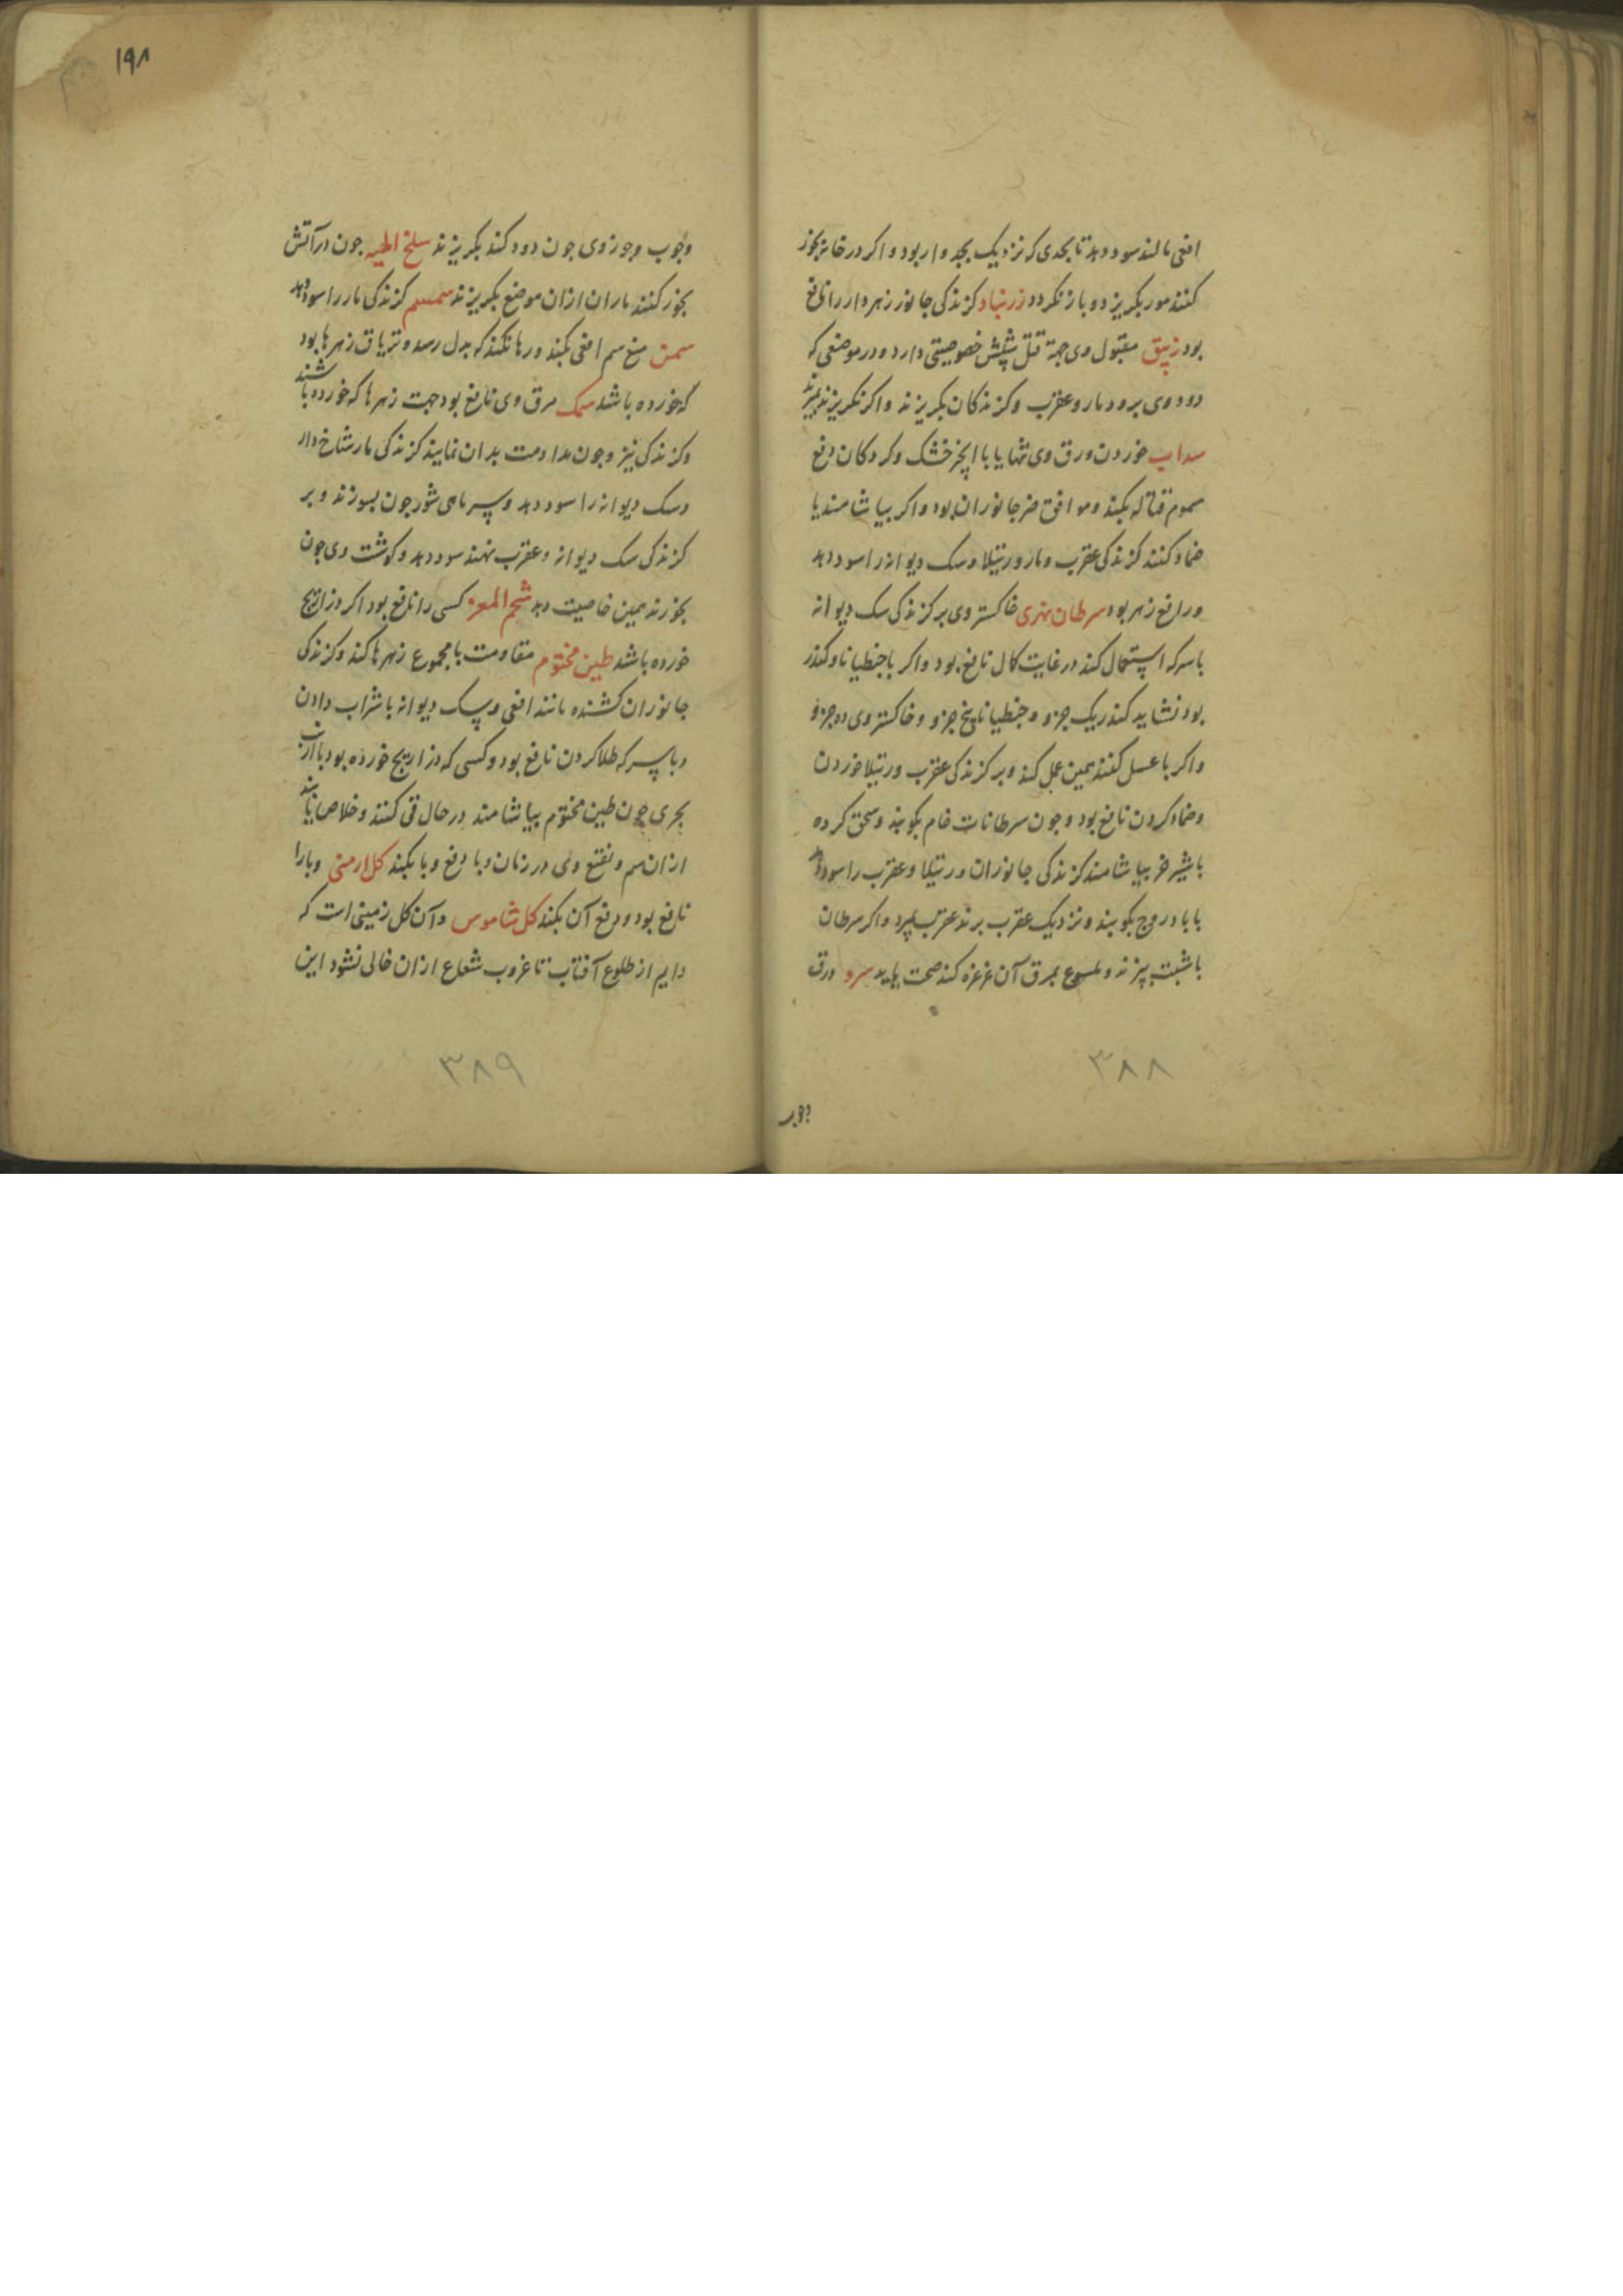 افعی مالند سود دهد تا بحدی که نزدیک بجدوار بود و اکر در خانه بخور
کنند مور بکریزد و باز نکردد زرنباد کزندکی جانور زهردار را نافع
بود زیبق مقبول وی جهة قتل شپش خصوصیتی دارد و در موضعی که
دود وی برود مار و عقرب و کزندکان بکریزند و اکر نکریزند بمیرند
سداب خوردن ورق وی تنها یا با انجیر خشک و کردکان دفع
سموم قتاله بکند و موافق ضرر جانوران بود و اکر بیاشامند یا
ضماد کنند کزندکی عقرب و مار و رتیلا و سک دیوانه را سود دهد
و رافع زهر بود سرطان نهری خاکستر وی بر کزندکی سک دیوانه
با سرکه استعمال کنند در غایت کمال نافع بود و اکر با جنطیانا و کندر
بود نشاید کندر یک جزو و جنطیانا پنج جزو و خاکستر وی ده جزو
و اکر با عسل کنند همین عمل کند و بر کزندکی عقرب و رتیلا خوردن
و ضماد کردن نافع بود و جون سرطانات خام بکوبند و سحق کرده
با شیر خر بیاشامند کزندکی جانوران و رتیلا و عقرب را سود دهد
با بادروج بکوبند و نزدیک عقرب برند عقرب بمیرد و اکر سرطان
با شبت بپزند و ملسوع بمرق آن غرغره کند صحت یابد سرو ورق
۳۸۸
۱۹۸
وجوب وجوز وی جون دود کند بکریزند سلخ الحیه جون در آتش
بخور کنند ماران ازان موضع بکریزند سمسم کزندکی مار را سود دهد
سمن منع سم افعی بکند و رها نکند که بدل رسد و تریاق زهرها بود
که خورده باشد سمک مرق وی نافع بود جهت زهرها که خورده باشند
و کزندکی نیز و جون مداومت بدان نمایند کزندکی مار شاخ دار
و سک دیوانه را سود دهد و سر ماهی شور جون بسوزند و بر
کزندکی سک دیوانه و عقرب نهند سود دهد و کوشت وی جون
بخورند همین خاصیت دهد شحم المعز کسی را نافع بود اکر ذراریح
خورده باشد طین مختوم مقاومت با مجموع زهرها کند و کزندکی
جانوران کشنده مانند افعی و سک دیوانه با شراب دادن
و با سرکه طلا کردن نافع بود و کسی که ذراریح خورده بود با ارنب
بحری جون طین مختوم بیاشامند در حال قی کنند و خلاص یابند
ازان سم و نفع وی در زمان وبا دفع وبا بکند کل ارمنی وبا را
نافع بود و دفع آن بکند کل شاموس و آن کل زمینی است که
دایم از طلوع آفتاب تا غروب شعاع ازان خالی نشود این
۳۸۹